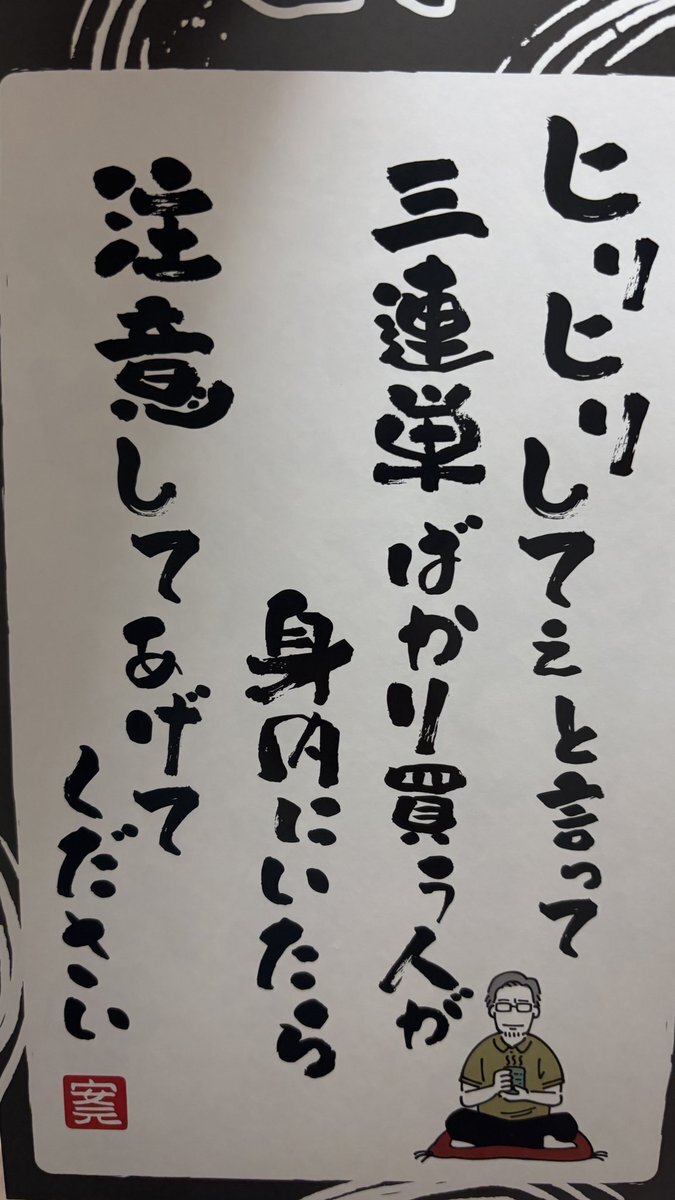 ヒリヒリしてぇと言って
三連単ばかり買う人が
身内にいたら
注意してあげて
ください
安元